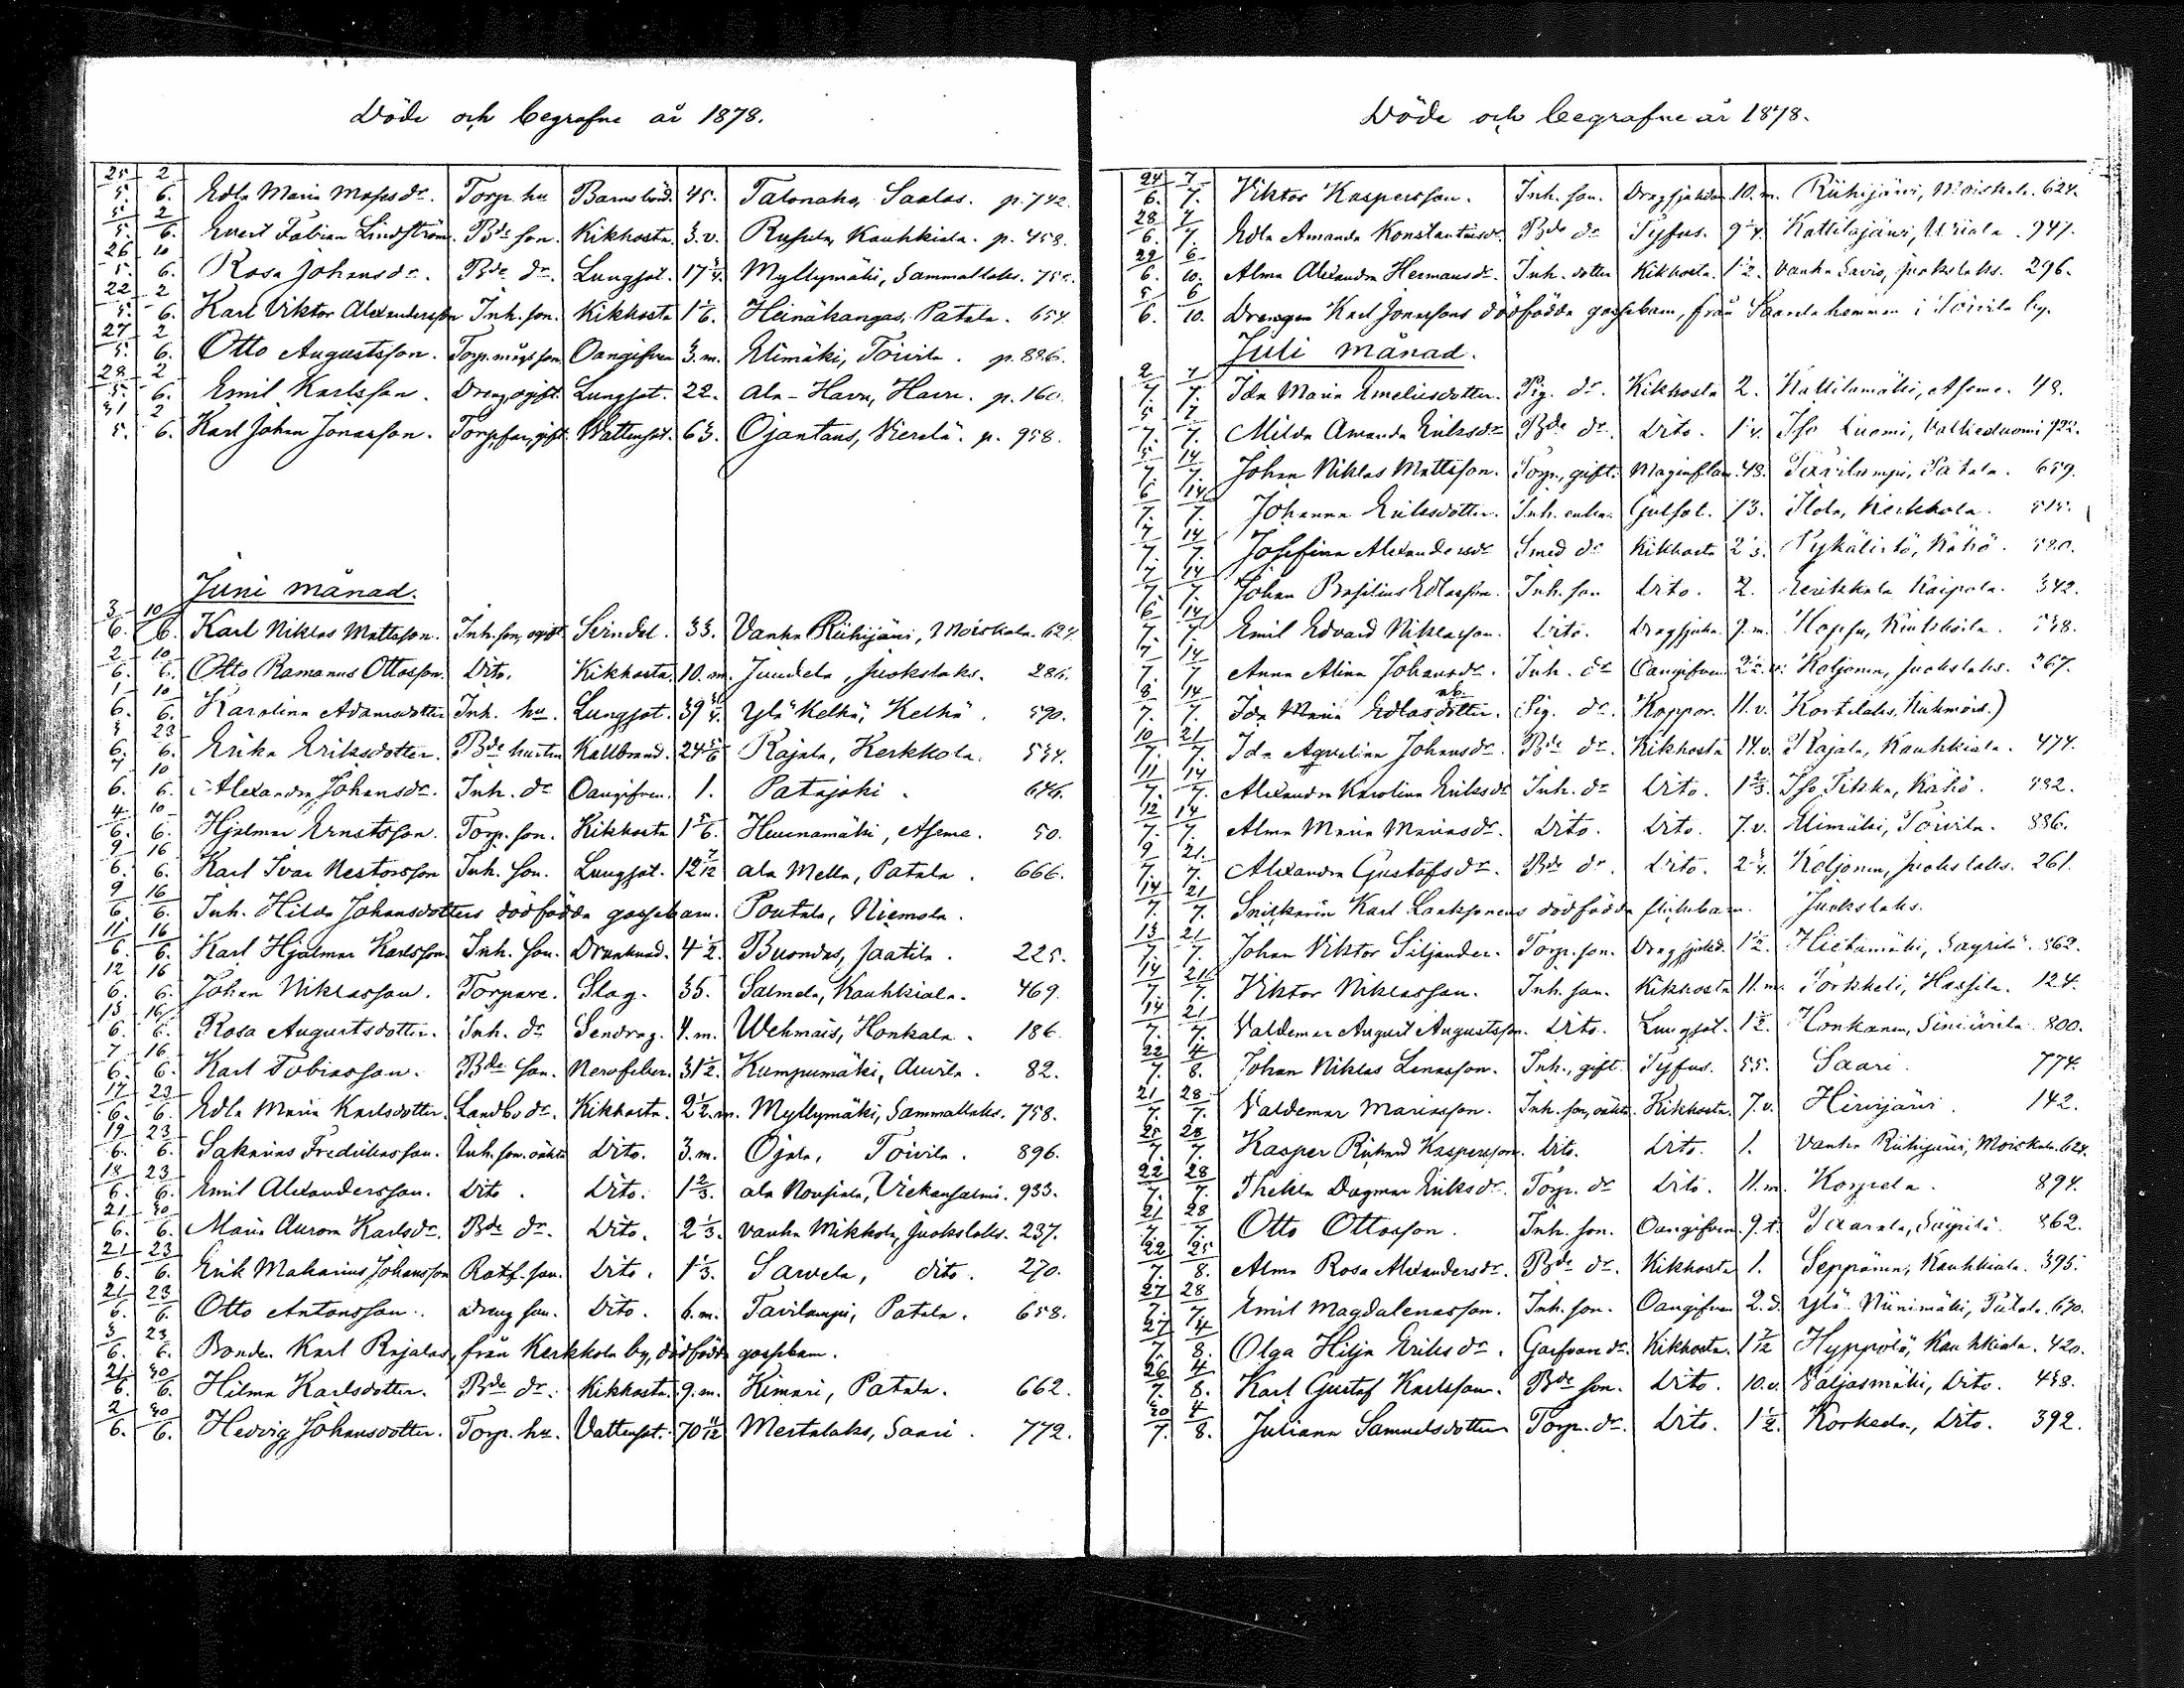 Döde och begrafne år 1878.
25/5. 2/6. Edla Maria Mossdr. Torp. hu Barnsbörd. 45. Talonaho, Saalas. p. 742.
5/5. 2/6. Evert Fabian Lindström. Bde son. Kikhosta. 3.v. Rusula, Kauhkiala. p. 458.
26/5. 10/6. Rosa Johansdr. Bde dr. Lungsot. 17 3/4. Myllymäki, Sammallaks.
22/5. 2/6. Karl Viktor Alexandersson Inh. son. Kikhosta 1 1/6. Heinäkangas, Patala. 654.
27/5. 2/6. Otto Augustsson. Torp. mågs son Oangifven 3.m. Elimäki, Toivila. p. 886.
28/5. 2/6. Emil Karlsson. Dreng ogift. Lungsot. 22. Ala-Havu, Havu. p. 160.
31/5. 2/6. Karl Johan Jonasson. Torpfar, gift. Wattensot. 63. Ojantaus, Vierelä. p. 958.
Juni månad.
3/6. 10/6. Karl Niklas Mattsson. Inh. son, ogift. Svindel. 33. Vanha Riihijärvi, Moiskala. 624.
2/6. 10/6. Otto Ramanus Ottosson. Dito. Kikhosta. 10.m. Juudela, Juokslaks. 286.
1/6. 10/6. Karolina Adamsdotter Inh. hu. Lungsot. 39 Ylä Kelhä, Kelhä. 590.
23/6. Erika Eriksdotter. Bde hustru Kallbrand. 24 5/6 Rajala, Kerkkola. 534.
10/6. Alexandra Johansdr. Inh. dr Oangifven. 1. Patajoki. 646.
4/6. 10/6. Hjalmar Ernstsson. Torp. son. Kikhosta 1 5/6. Huurnamäki, Aseme. 50.
9/6. 16/6. Karl Ivar Nestorsson Inh. son. Lungsot. 12 7/12 Ala Mella, Patala. 666.
9/6. 16/6. Inh. Hilda Johansdotters dödfödda gossebarn. Poutala, Niemola.
11/6. 16/6. Karl Hjalmar Karlsson Inh. son. Drunknad. 4 1/2. Buondas, Jaatila. 225.
12/6. 16/6. Johan Niklasson. Torpare. Slag. 35. Salmela, Kauhkiala. 469.
13/6. 16/6. Rosa Augustsdotter. Inh. dr Sendrag. 4.m. Wehmais, Honkala. 186.
7/6. 16/6. Karl Tobiasson. Bde son. Nervfeber. 31 1/2. Kumpumäki, Auvila. 82.
17/6. 23/6. Edla Maria Karlsdotter. Landbo dr. Kikhosta. 2 1/2.m. Myllymäki, Sammallaks. 758.
19/6. 23/6. Sakarias Fredriksson. Inh. son. oäkta Dito. 3.m. Ojala, Toivila. 896.
18/6. 23/6. Emil Alexandersson. Dito. Dito. 1 2/3. Ala Nousiala, Viekansalmi. 933.
21/6. 30/6. Maria Aurora Karlsdr. Bde dr. Dito. 2 1/3. Vanha Mikkola, Juokslaks. 237.
21/6. 23/6. Erik Makarius Johansson Rotf. son. Dito. 1 1/3. Sarvela, dito. 270.
21/6. 23/6. Otto Antonsson. Dreng son. Dito. 6.m. Tavilampi, Patala. 658.
3/6. 23/6. Bonden Karl Rajalas, från Kerkkola by, dödfödda gossebarn.
21/6. 30/6. Hilma Karlsdotter. Bde dr. Kikhosta. 9.m. Kimari, Patala. 662.
2/6. 30/6. Hedvig Johansdotter. Torp. hu. Vattensot. 70 11/12 Mertalaks, Saari. 772.
Döde och begrafne år 1878.
24/6. 7/7. Viktor Kaspersson. Inh. son. Dragsjukdom 10.m. Riihijärvi, Moiskala. 624.
28/6. 7/7. Edla Amanda Konstantinsdr. Bde dr Tyfus. 9 1/4. Kattilajärvi, Uriala. 947.
22/6. 6/10. Alma Alexandra Hermansdr. Inh. dotter Kikhosta. 1 1/2. Vanha Savio, Juokslaks. 296.
5/6. 6/10. Drengen Karl Jonassons dödfödda gossebarn, från Saarela hemman i Toivila by.
Juli månad.
2/7. 7/7. Ida Maria Emeliasdotter. Pig. dr. Kikhosta 2. Kattilamäki, Aseme. 48.
5/7. 7/7. Milda Amanda Eriksdr Bde dr. Dito. 1 1/4. Iso Luomi, 922.
5/7. 14/7. Johan Niklas Mattsson. Torp., gift. Maginflam. 43. Tavilampi, Patala. 659.
6/7. 14/7. Johanna Eriksdotter. Inh. enka. Gulsot. 73. Ilola, Kerkkola. 515.
7/7. 14/7. Josefina Alexandersdr Smed dr Kikhosta 2 Pykälistö, Kähö. 580.
7/7. 14/7. Johan Basilius Edlasson. Inh. son Dito. 2. Kaipola. 342.
6/7. 14/7. Emil Edvard Niklasson. Dito. Dragsjuka. 9.m. Hopsu, 538.
7/7. 14/7. Anna Alina Johansdr. Inh. dr Oangifven 2 1/2.v. Koljonen, Juokslaks. 267.
8/7. 14/7. Ida Maria Edlasdotter. Pig. dr. Koppor. 11.v. Kortelaks, Kuhmois.)
10/7. 21/7. Ida Aqvelina Johansdr. Bde dr. Kikhosta 14.v. Rajala, Kauhkiala. 474.
11/7. 14/7. Alexandra Karolina Eriksdr Inh. dr Dito. 1 2/3. Iso Tikka, Kähö. 582.
12/7. 14/7. Alma Maria Mariasdr. Dito. Dito. 7.v. Elimäki, Toivila. 886.
9/7. 21/7. Alexandra Gustafsdr. Bde dr. Dito. 2 3/4. Koljonen, Juokslaks. 261.
14/7. 21/7. Snickarin Karl Laaksonens dödfödda flickebarn. Juokslaks.
13/7. 21/7. Johan Viktor Siljander. Torp. son. Dragsjukd. 1 1/2. Hietamäki, Säyrilä. 862.
14/7. 21/7. Viktor Niklasson. Inh. son. Kikhosta 11.m. Torkkeli, Hassila. 124.
14/7. 21/7. Valdemar August Augustsson. Dito. Lungsot. 1 1/2. Honkanen, 800.
22/7. 4/8. Johan Niklas Lenasson. Inh., gift. Tyfus. 55. Saari. 774.
21/7. 28/7. Valdemar Mariasson. Inh. son, oäkta. Kikhosta. 7.v. Hirvijärvi. 142.
25/7. 28/7. Kasper Richard Kaspersson. Dito. Dito. 1. Vanha Riihijärvi, Moiskala. 624.
22/7. 28/7. Thekla Dagmar Eriksdr. Torp. dr Dito. 11.m. Korpela. 894.
21/7. 28/7. Otto Ottosson. Inh. son. Oangifven. 9.t. Saarela, Säyrilä. 862.
22/7. 25/8. Alma Rosa Alexandersdr. Bde dr. Kikhosta 1. Seppänen, Kauhkiala. 395.
27/7. 28/7. Emil Magdalenasson. Inh. son. Oangifven 2.d. Ylä Niinimäki, Patala. 630.
27/7. 4/8. Olga Hilja Eriksdr. Garfvare dr. Kikhosta. 1 7/12 Hyppölä, Kauhkiala. 420.
26/7. 4/8. Karl Gustaf Karlsson. Bde son. Dito. 10.v. Valjasmäki, Dito. 438.
30/7. 4/8. Juliana Samuelsdotter Torp. dr. Dito. 1 1/2. Korkeela, Dito. 392.